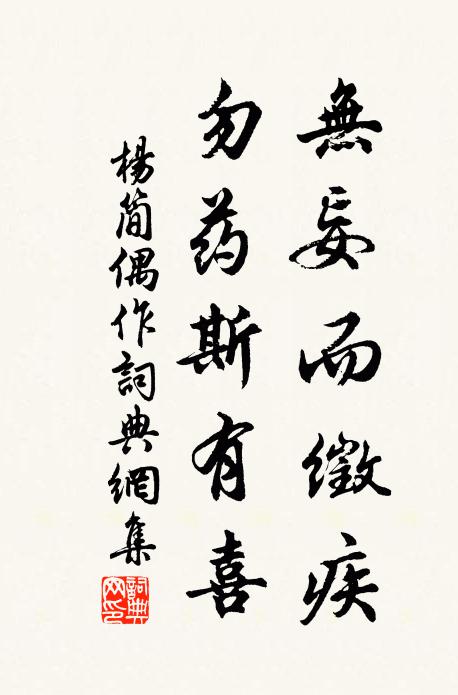 無妄而徵疾
勿药斯有喜
楊简偶作詞典網集
詞典网印